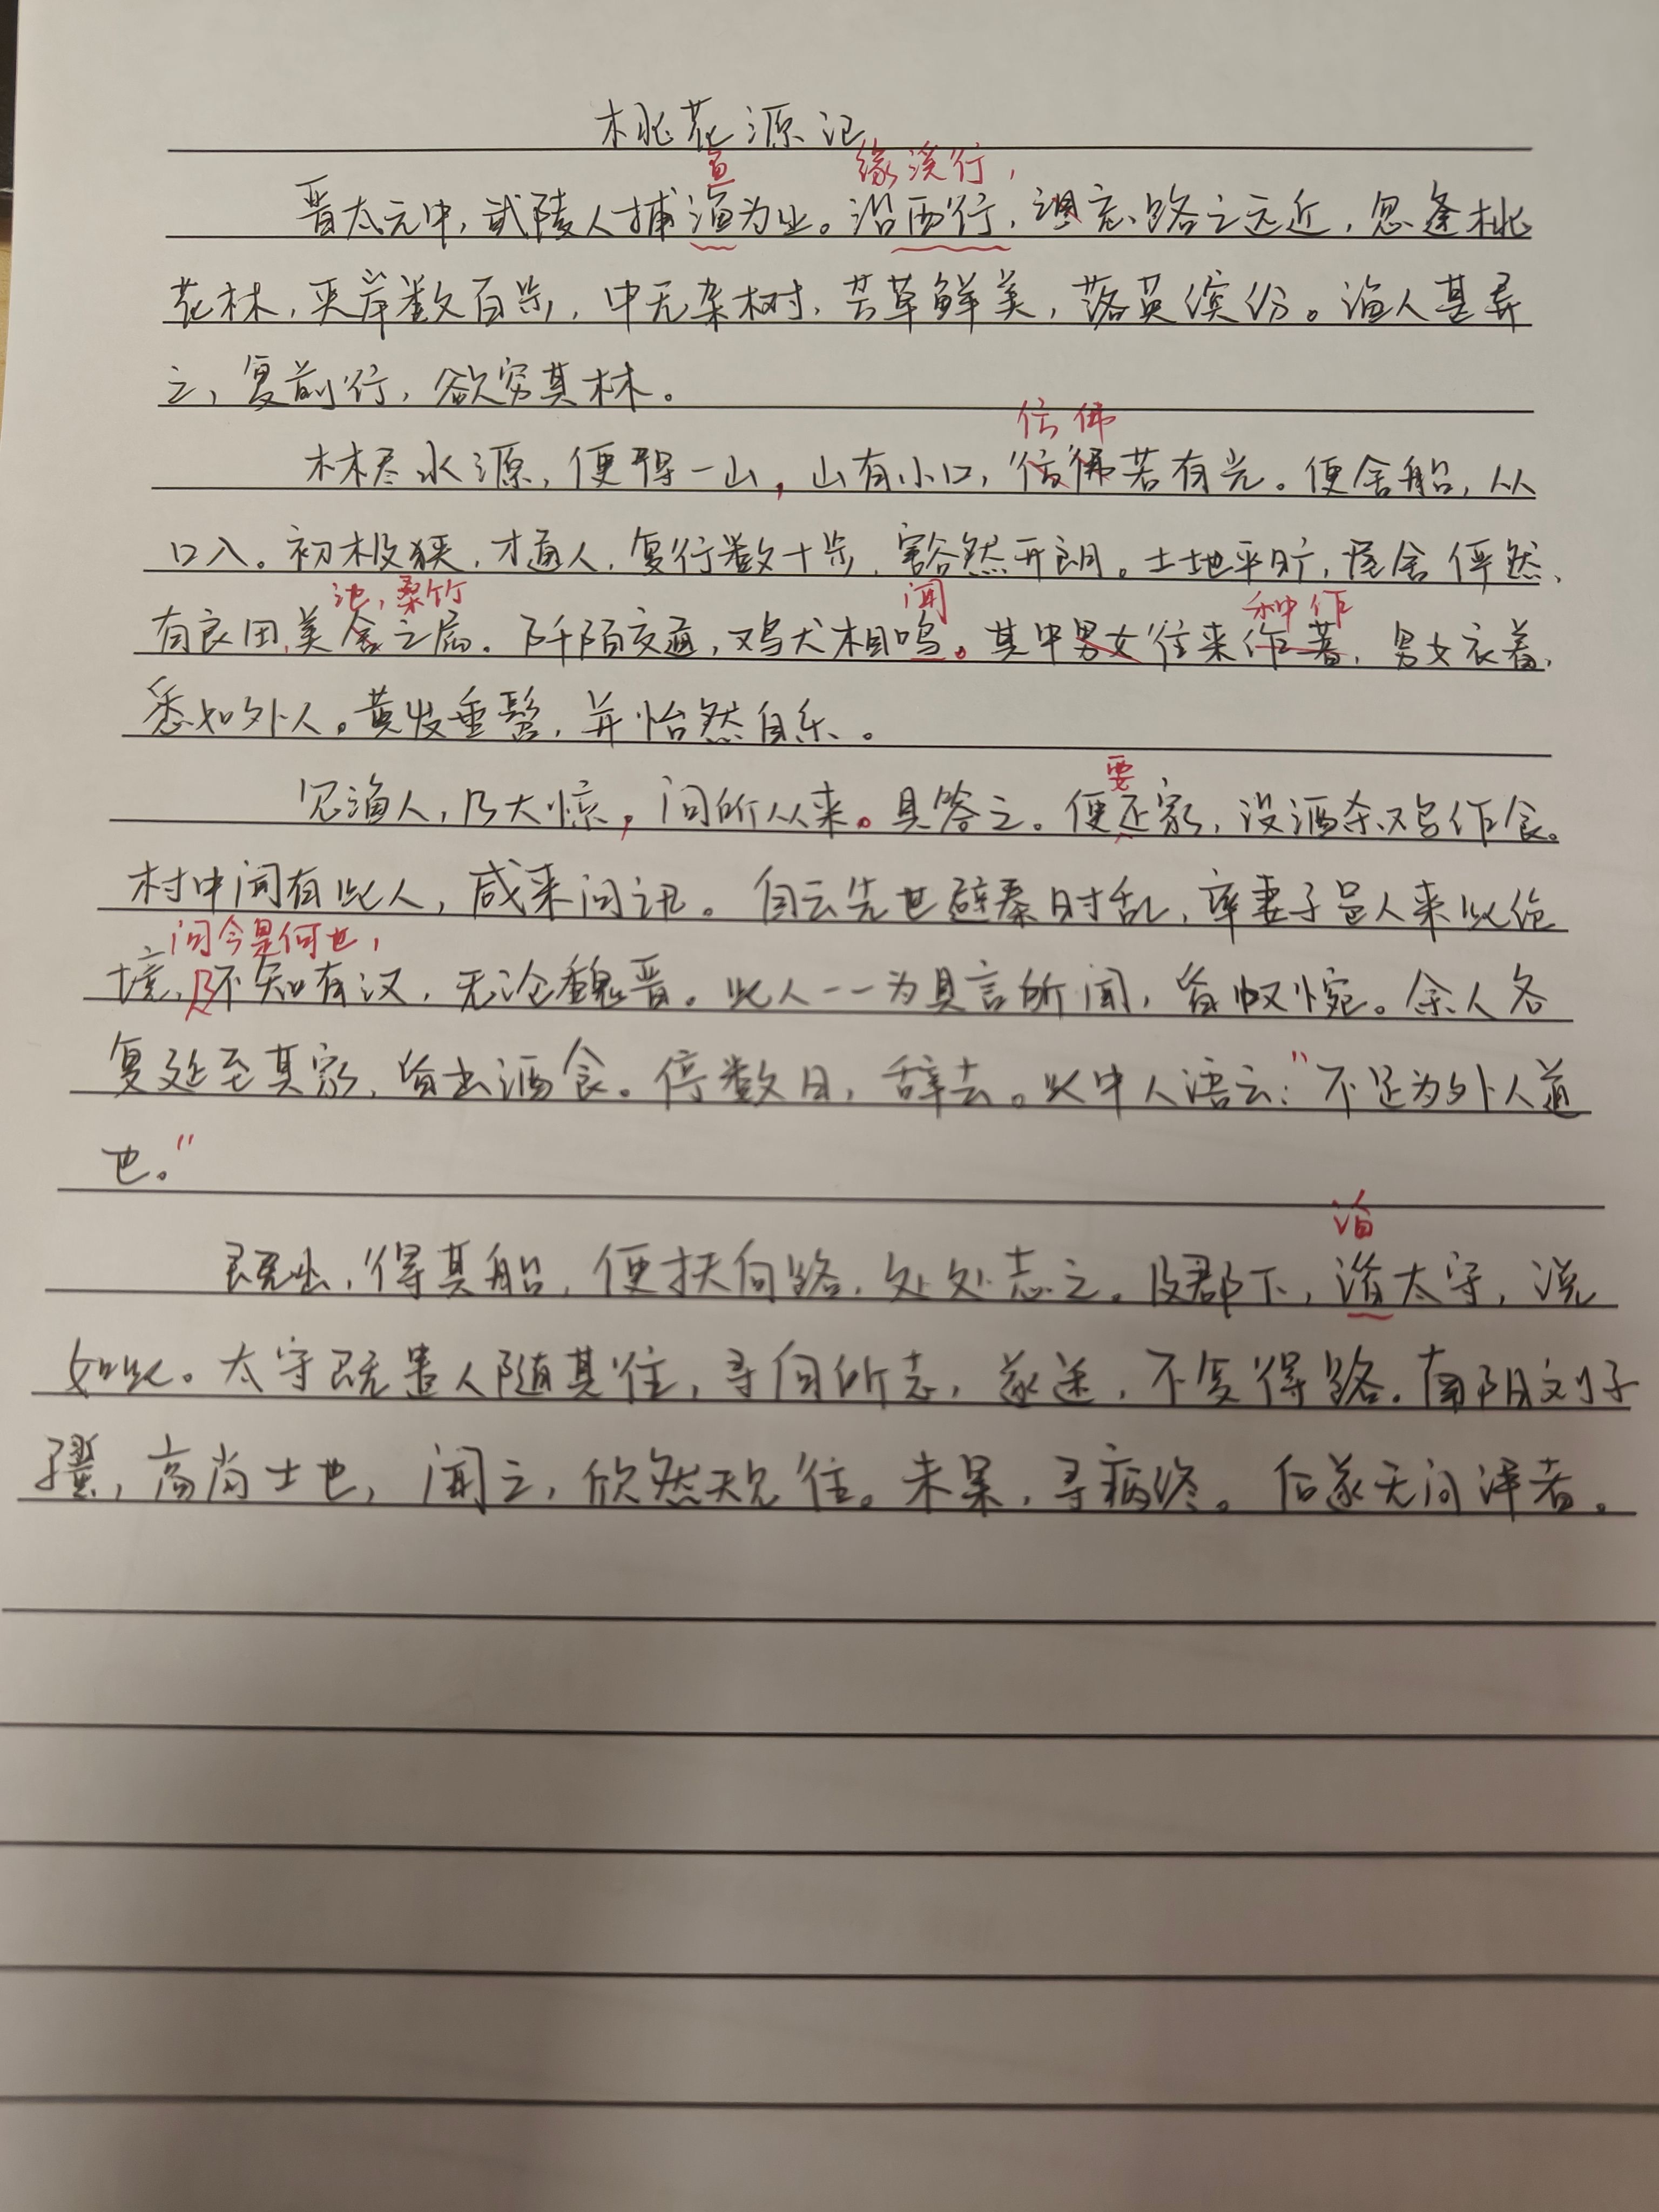 桃花源记
鱼 缘溪行，
晋太元中，武陵人捕渔为业。沿西行，忘路之远近，忽逢桃
花林，夹岸数百步，中无杂树，芳草鲜美，落英缤纷。渔人甚异
之，复前行，欲穷其林。
仿佛
林尽水源，便得一山，山有小口，仿佛若有光。便舍船，从
口入。初极狭，才通人，复行数十步，豁然开朗。土地平旷，屋舍俨然，
池，桑竹 闻 种作
有良田，美舍之属。阡陌交通，鸡犬相鸣。其中男女往来作著，男女衣着，
悉如外人。黄发垂髫，并怡然自乐。
要
见渔人，乃大惊，问所从来。具答之。便还家，设酒杀鸡作食。
村中闻有此人，咸来问讯。自云先世避秦时乱，率妻子邑人来此绝
问今是何世，
境，乃不知有汉，无论魏晋。此人一一为具言所闻，皆叹惋。余人各
复延至其家，皆出酒食。停数日，辞去。此中人语云：“不足为外人道
也。”
诣
既出，得其船，便扶向路，处处志之。及郡下，诣太守，说
如此。太守既遣人随其往，寻向所志，遂迷，不复得路。南阳刘子
骥，高尚士也，闻之，欣然规往。未果，寻病终。后遂无问津者。